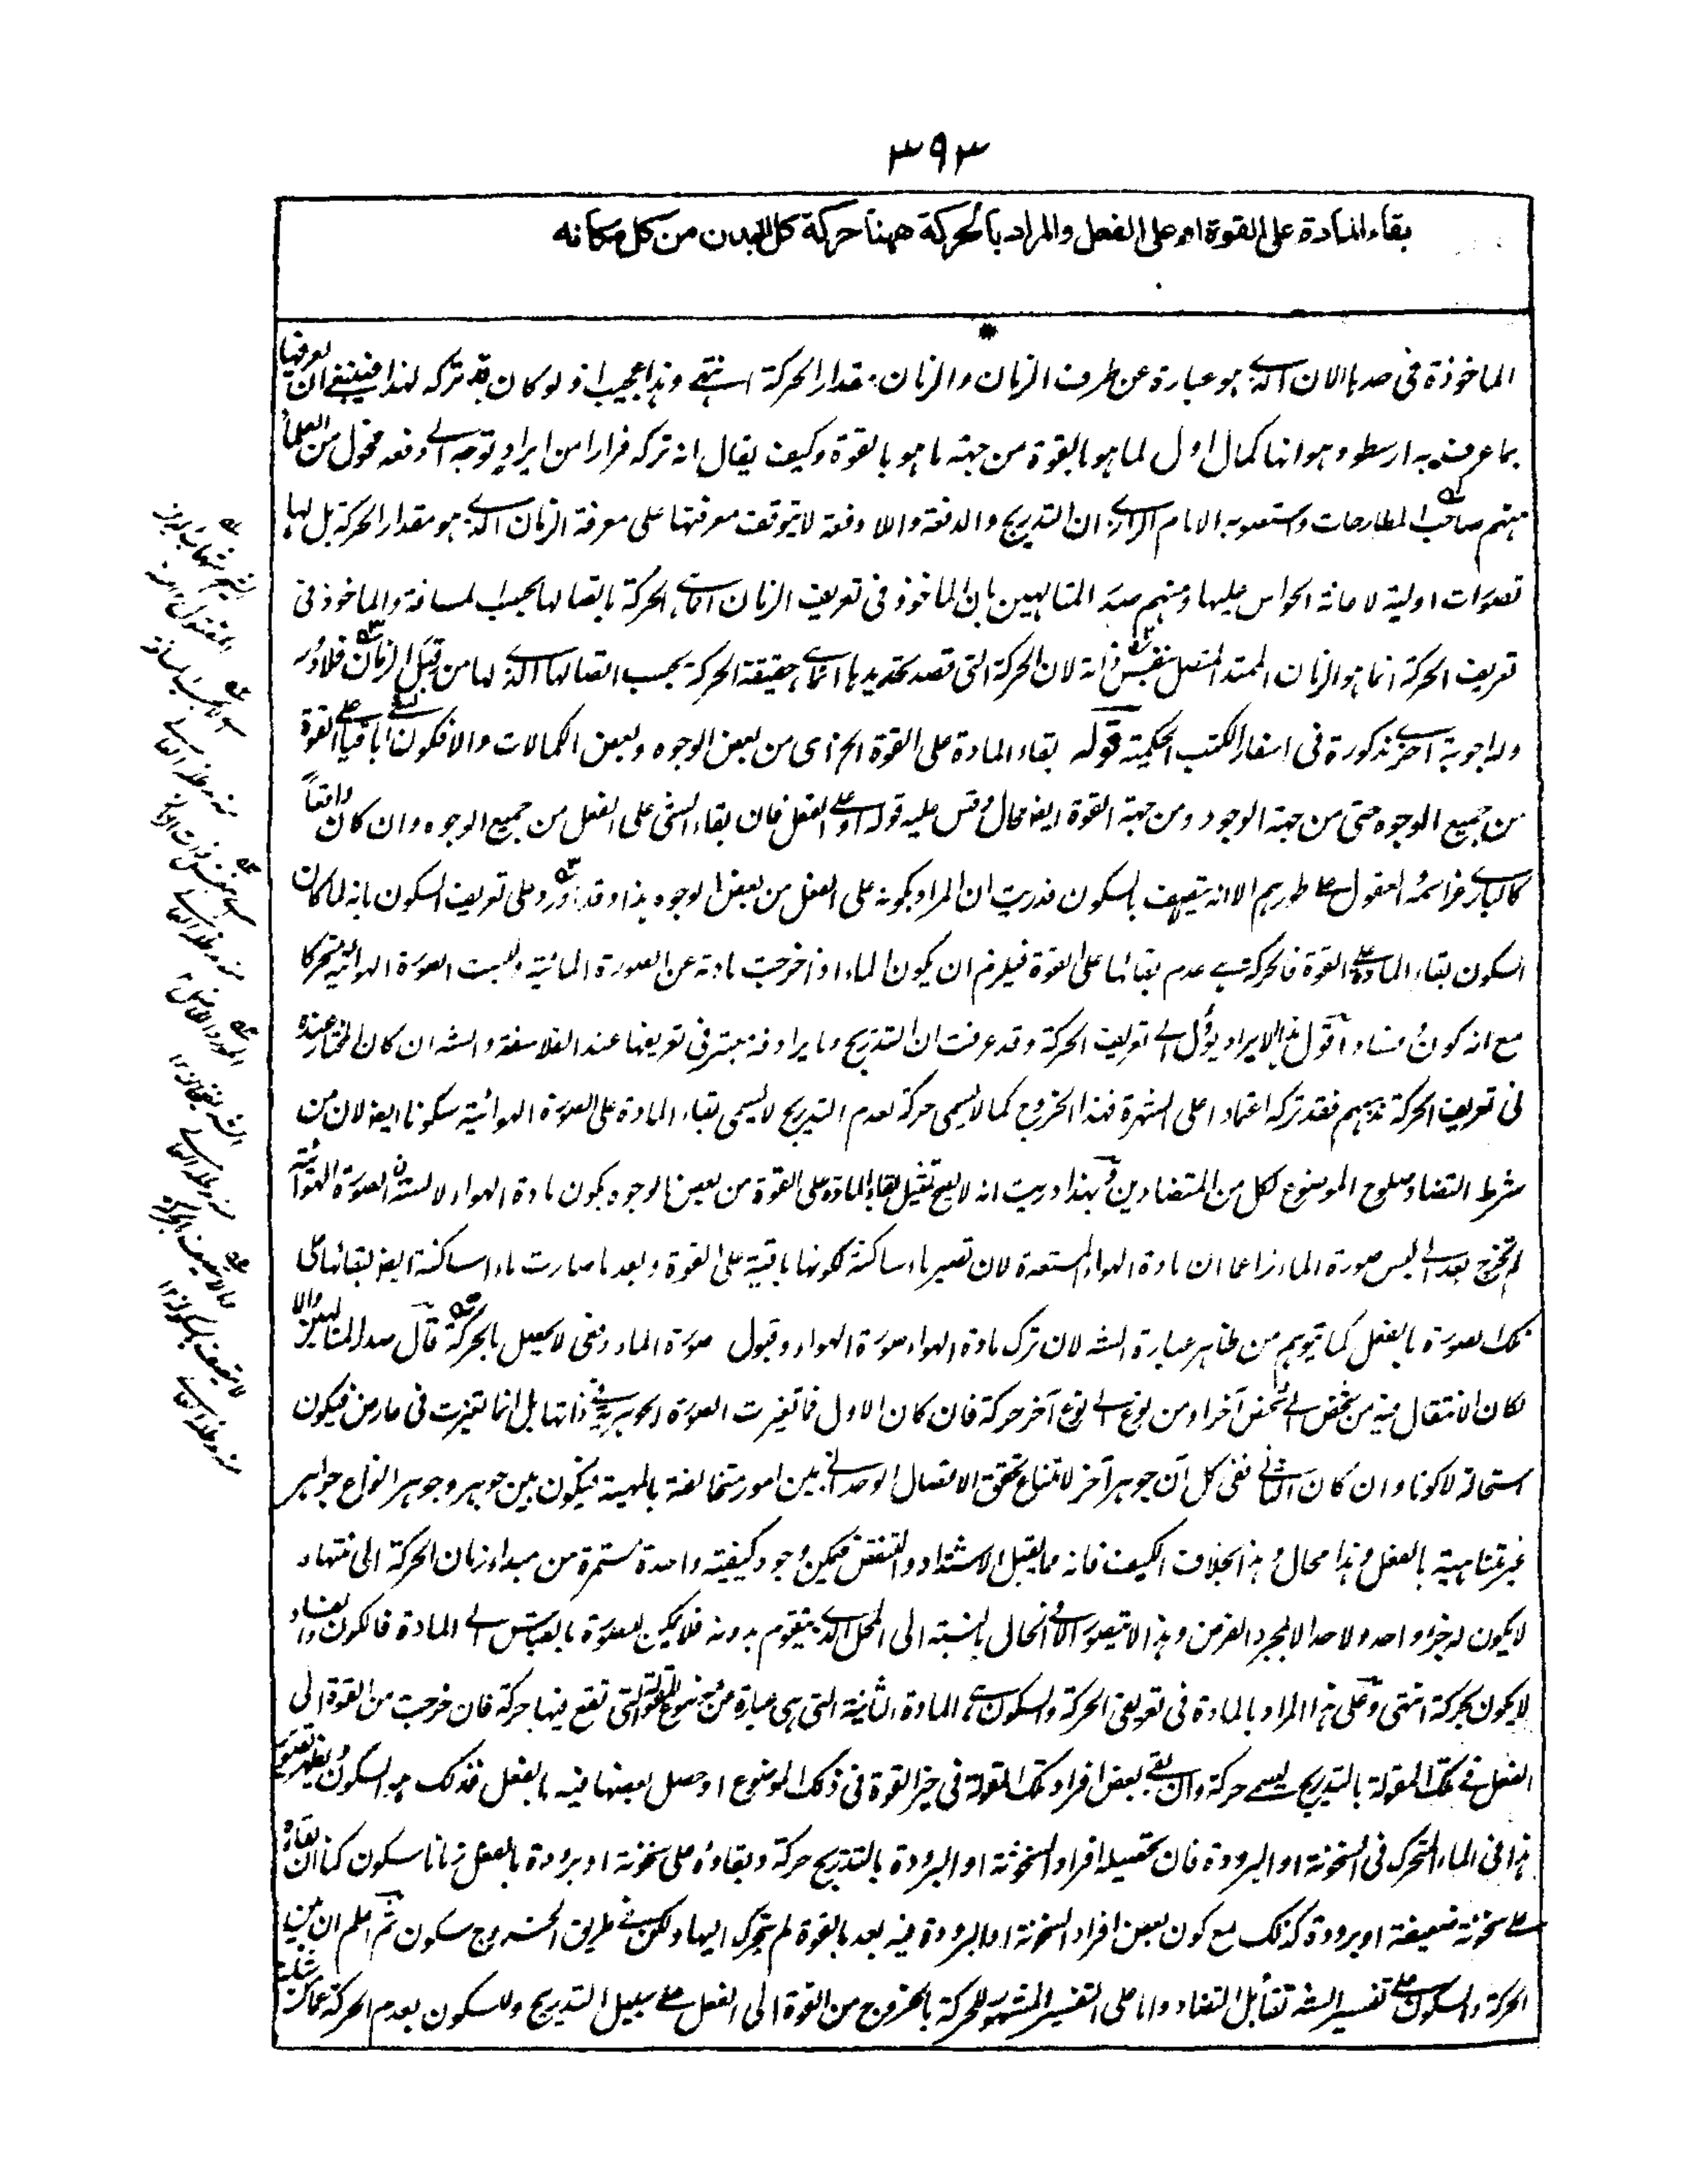 ٣٩٣
بقاء المادة على القوة او على الفعل والمراد بالحركة ههنا حركة كل البدن من كل مكانه
الماخوذة فى حدها الان الذى هو عبارة عن طرف الزمان والزمان مقدار الحركة انتهى وهذا عجيب اذ لو كان قد تركه لهذا فينبغى ان يعرفها
بما عرف به ارسطو وهو انها كمال اول لما هو بالقوة من جهة ما هو بالقوة وكيف يقال انه تركه فرارا من ايراد توجه الى دفعه فحول من العلماء
منهم صاحب المطارحات واستصوبه الامام الرازى ان التدريج والدفعة واللا دفعة لا يتوقف معرفتها على معرفة الزمان الذى هو مقدار الحركة بل لها
تصورات اولية لاعانة الحواس عليها ومنهم صدر المتالهين بان الماخوذ فى تعريف الزمان انما هى الحركة باتصالها بحسب المسافة والماخوذ فى
تعريف الحركة انما هو الزمان الممتد المتصل بنفس ذاته لان الحركة التى قصد تحديدها انما هى حقيقة الحركة بحسب اتصالها الذى لها من قبل الزمان فلا دور
وله اجوبة اخرى مذكورة فى اسفار الكتب الحكمية قوله بقاء المادة على القوة الخ اى من بعض الوجوه وبعض الكمالات والا فكون الشئ باقيا على القوة
من جميع الوجوه حتى من جهة الوجود ومن جهة القوة ايض محال وقس عليه قوله او على الفعل فان بقاء الشئ على الفعل من جميع الوجوه وان كان واقعاً
كالبارى عز اسمه والعقول على طورهم الا انه لا يتصف بالسكون فدريت ان المراد بكونه على الفعل من بعض الوجوه هذا وقد اورد على تعريف السكون بانه لما كان
السكون بقاء المادة على القوة فالحركة هى عدم بقائها على القوة فيلزم ان يكون الماء اذا خرجت مادته عن الصورة المائية ولبست الصورة الهوائية متحركا
مع انه كون وفساد اقول هذا الايراد يؤل الى تعريف الحركة وقد عرفت ان التدريج وما يرادفه معتبر فى تعريفها عند الفلاسفة والشه ان كان المختار عنده
فى تعريف الحركة مذهبهم فقد تركه اعتمادا على الشهرة فهذا الخروج كما لا يسمى حركة لعدم التدريج لا يسمى بقاء المادة على الصورة الهوائية سكونا ايض لان من
شرط التضاد صلوح الموضوع لكل من المتضادين وبهذا دريت انه لا يصح تمثيل بقاء المادة على القوة من بعض الوجوه بكون مادة الهواء لابسة الصورة الهوائية
لم تخرج بعد الى لبس صورة الماء زاعما ان مادة الهواء المستعدة لان تصير ماء ساكنة لكونها باقية على القوة وبعد ما صارت ماء ساكنة ايض لبقائها على
تلك الصورة بالفعل كما يتوهم من ظاهر عبارة الشه لان ترك مادة الهواء صورة الهواء وقبول صورة الماء دفعى لا يحصل بالحركة قال صدر المتالهين والا
لكان الانتقال فيه من شخص الى شخص آخر او من نوع الى نوع آخر حركة فان كان الاول فما تغيرت الصورة الجوهرية فى ذاتها بل انما تغيرت فى عارض فيكون
استحالة لا كونا وان كان الثانى ففى كل آن جوهر آخر لامتناع تحقق الاتصال الوحدانى بين امور متخالفة بالمهية فيكون بين جوهر وجوهر انواع جواهر
غير متناهية بالفعل وهذا محال وهذا بخلاف الكيف فانه مما يقبل الاشتداد والتنقص فيمكن وجود كيفية واحدة مستمرة من مبداء زمان الحركة الى منتهاه
لا يكون له جزء واحد ولا حد الا بمجرد الفرض وهذا لا يتصور الا فى الحال بالنسبة الى المحل الذى يتقوم بدونه فلا يمكن للصورة بالقياس الى المادة فالكون والفساد
لا يكون بحركة انتهى وعلى هذا المراد بالمادة فى تعريفى الحركة والسكون هى المادة الثانية التى هى عبارة من موضوع المقولة التى تقع فيها حركة فان خرجت من القوة الى
الفعل فى تلك المقولة بالتدريج يسمى حركة وان بقى بعض افراد تلك المقولة فى حيز القوة فى ذلك الموضوع او حصل بعضها فيه بالفعل فذلك هو السكون ويظهر تصوير
هذا فى الماء المتحرك فى السخونة او البرودة فان تحصيله افراد السخونة او البرودة بالتدريج حركة وبقاؤه على سخونة او برودة بالفعل زمانا سكون كما ان بقاؤه
على سخونة ضعيفة او برودة كذلك مع كون بعض افراد السخونة او البرودة فيه بعد بالقوة لم يتحرك اليها ولكن فى طريق الخروج سكون ثم اعلم ان بين
الحركة والسكون على تفسير الشه تقابل التضاد واما على التفسير المشهور للحركة بالخروج من القوة الى الفعل على سبيل التدريج وللسكون بعدم الحركة عما من شانه